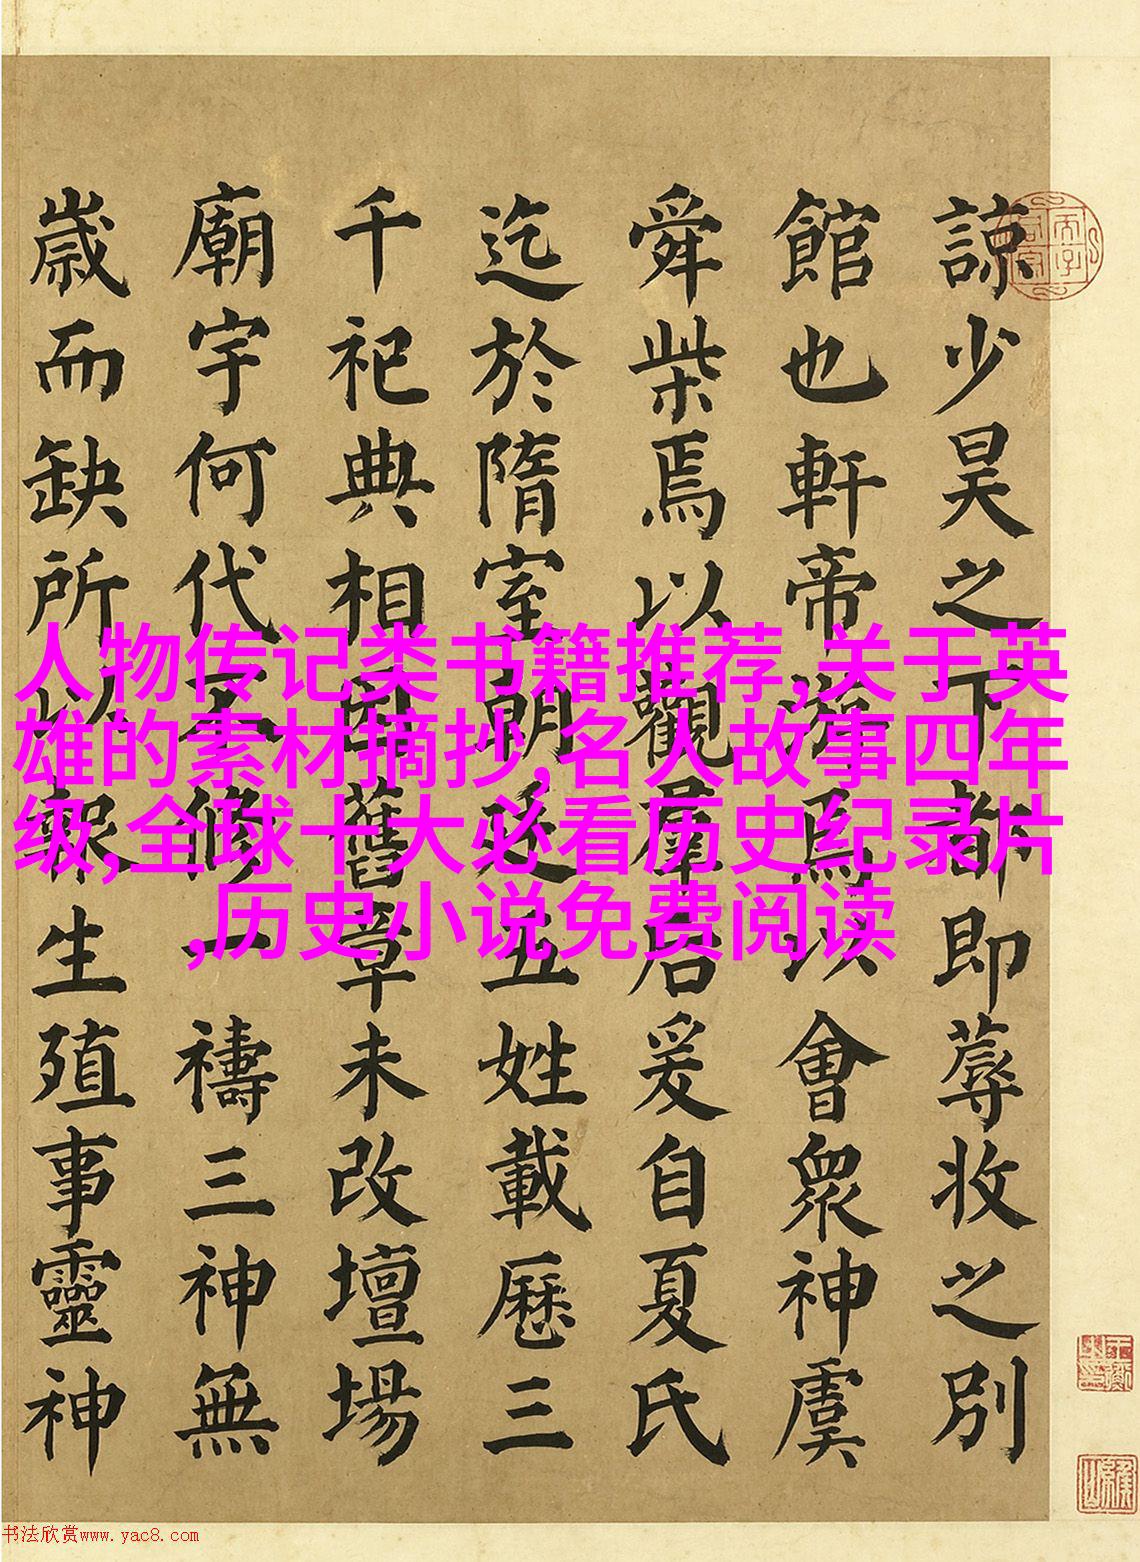 諒少昊之下都即蓐收之別
館也軒帝焉以會衆神虞
舜柴焉以觀羣后爰自夏氏
迄於隋室五姓載歷三
千祀典相因舊章未改壇場
廟宇何代不修一禱三神無
歲而缺所以生殖事靈神
人物传记类书籍推荐,关于英
雄的素材摘抄,名人故事四年
级,全球十大必看历史纪录片
,历史小说免费阅读
书法欣赏www.yac8.com